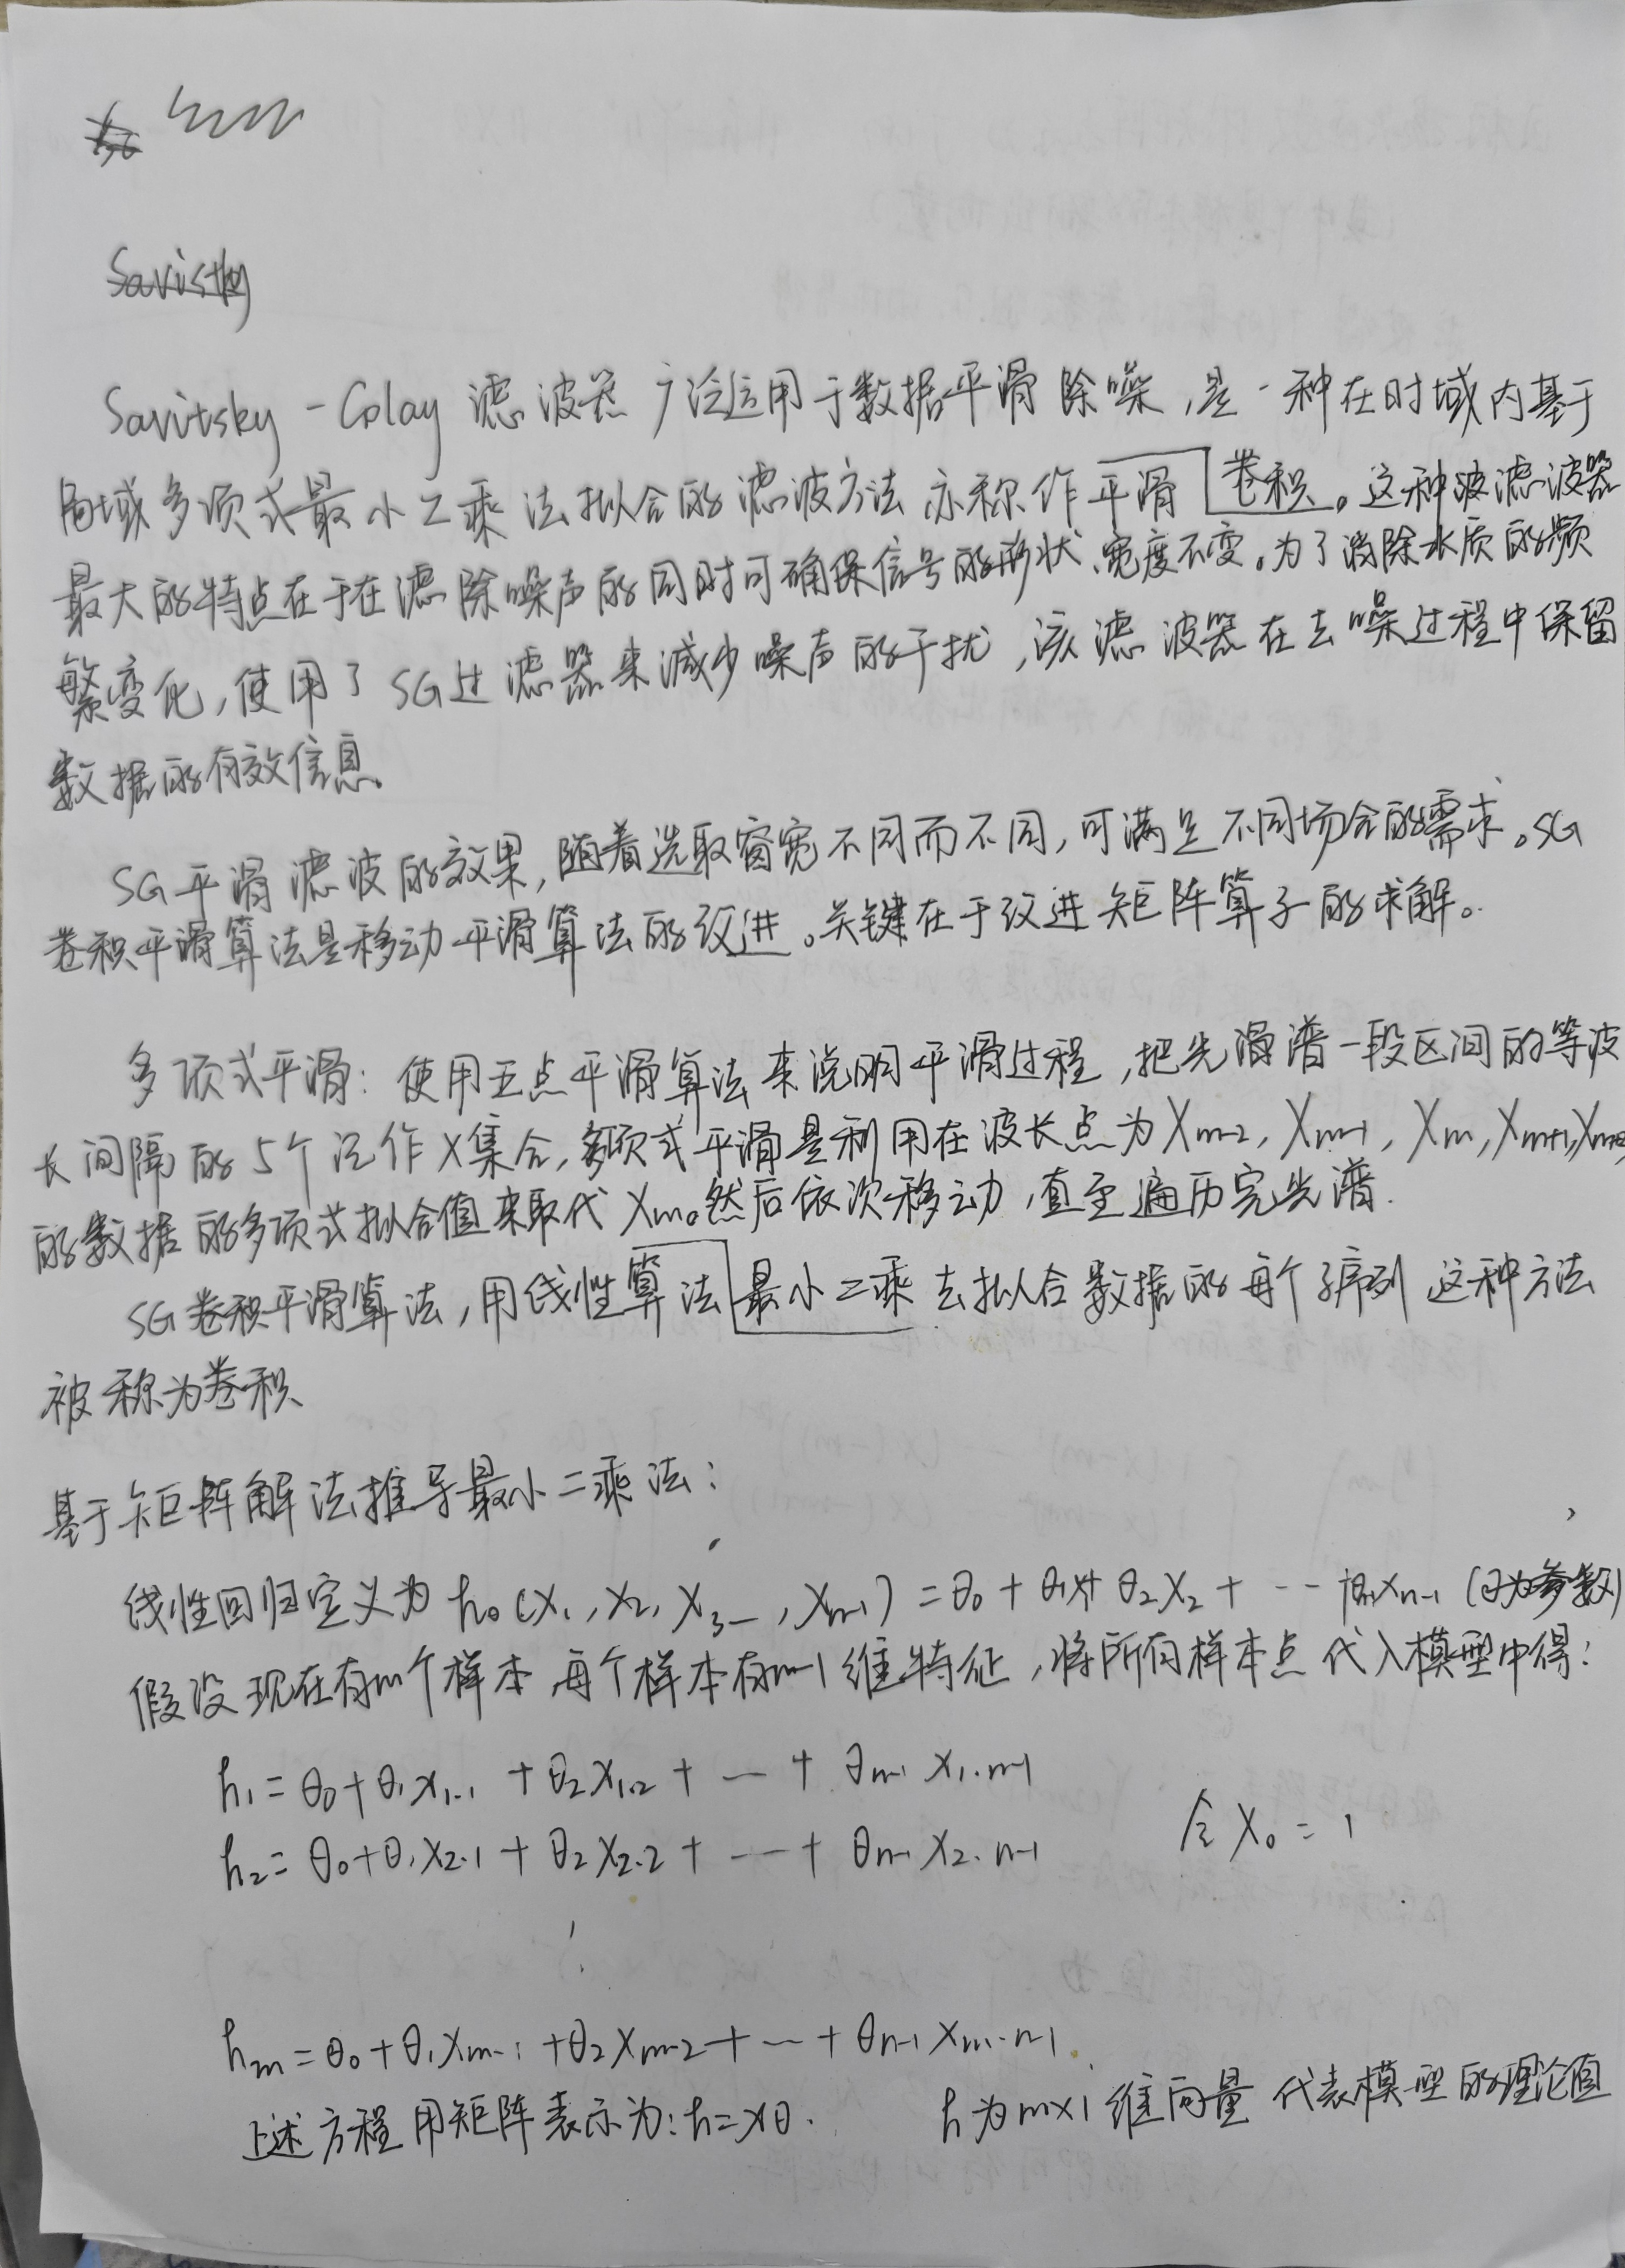 Savistky
Savitsky - Golay 滤波器广泛运用于数据平滑除噪,是一种在时域内基于
局域多项式最小二乘法拟合的滤波方法 亦称作平滑 卷积。这种波滤波器
最大的特点在于在滤除噪声的同时可确保信号的形状、宽度不变。为了消除水质的频
繁变化,使用了SG过滤器来减少噪声的干扰,该滤波器在去噪过程中保留
数据的有效信息。
SG平滑滤波的效果,随着选取窗宽不同而不同,可满足不同场合的需求。SG
卷积平滑算法是移动平滑算法的改进。关键在于改进矩阵算子的求解。
多项式平滑:使用五点平滑算法来说明平滑过程,把光滑谱一段区间的等波
长间隔的5个记作X集合,多项式平滑是利用在波长点为Xm-2, Xm-1, Xm, Xm+1, Xm+2
的数据的多项式拟合值来取代Xm。然后依次移动,直至遍历完光谱.
SG卷积平滑算法,用线性算法 最小二乘 去拟合数据的每个子序列 这种方法
被称为卷积
基于矩阵解法推导最小二乘法:
线性回归定义为 h₀(x₁, x₂, x₃ … , xn-1) = θ₀ + θ₁x₁ + θ₂x₂ + … + θn-1xn-1 (θ为参数)
假设现在有m个样本,每个样本有n-1维特征,将所有样本点代入模型中得:
h₁ = θ₀ + θ₁x₁.₁ + θ₂x₁.₂ + … + θn-1 x₁.n-1
令 X₀ = 1
h₂ = θ₀ + θ₁x₂.₁ + θ₂x₂.₂ + … + θn-1 x₂.n-1
hm = θ₀ + θ₁xm-1 + θ₂xm-2 + … + θn-1 xm.n-1
上述方程用矩阵表示为:h=xθ. h为m×1维向量 代表模型的理论值